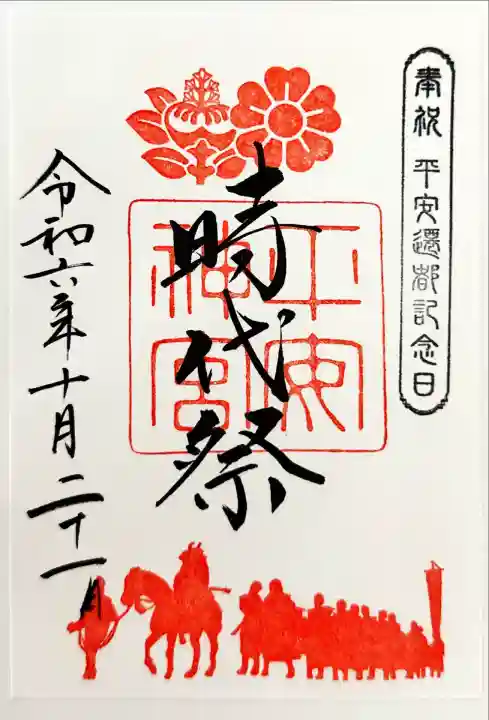 奉祝 平安遷都記念日
時代祭
平安
神宮
令和六年十月二十一日